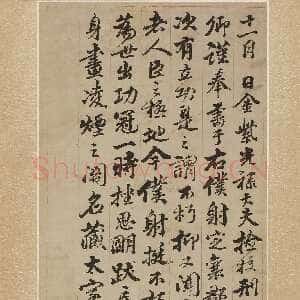 十一月 日金紫光祿大夫檢校刑
卿謹奉書于右僕射定襄郡
次有立功是之謂不朽抑又聞
者人臣之極地今僕射挺不朽
為世出功冠一時挫思明跋扈
身畫凌煙之閣名藏太室